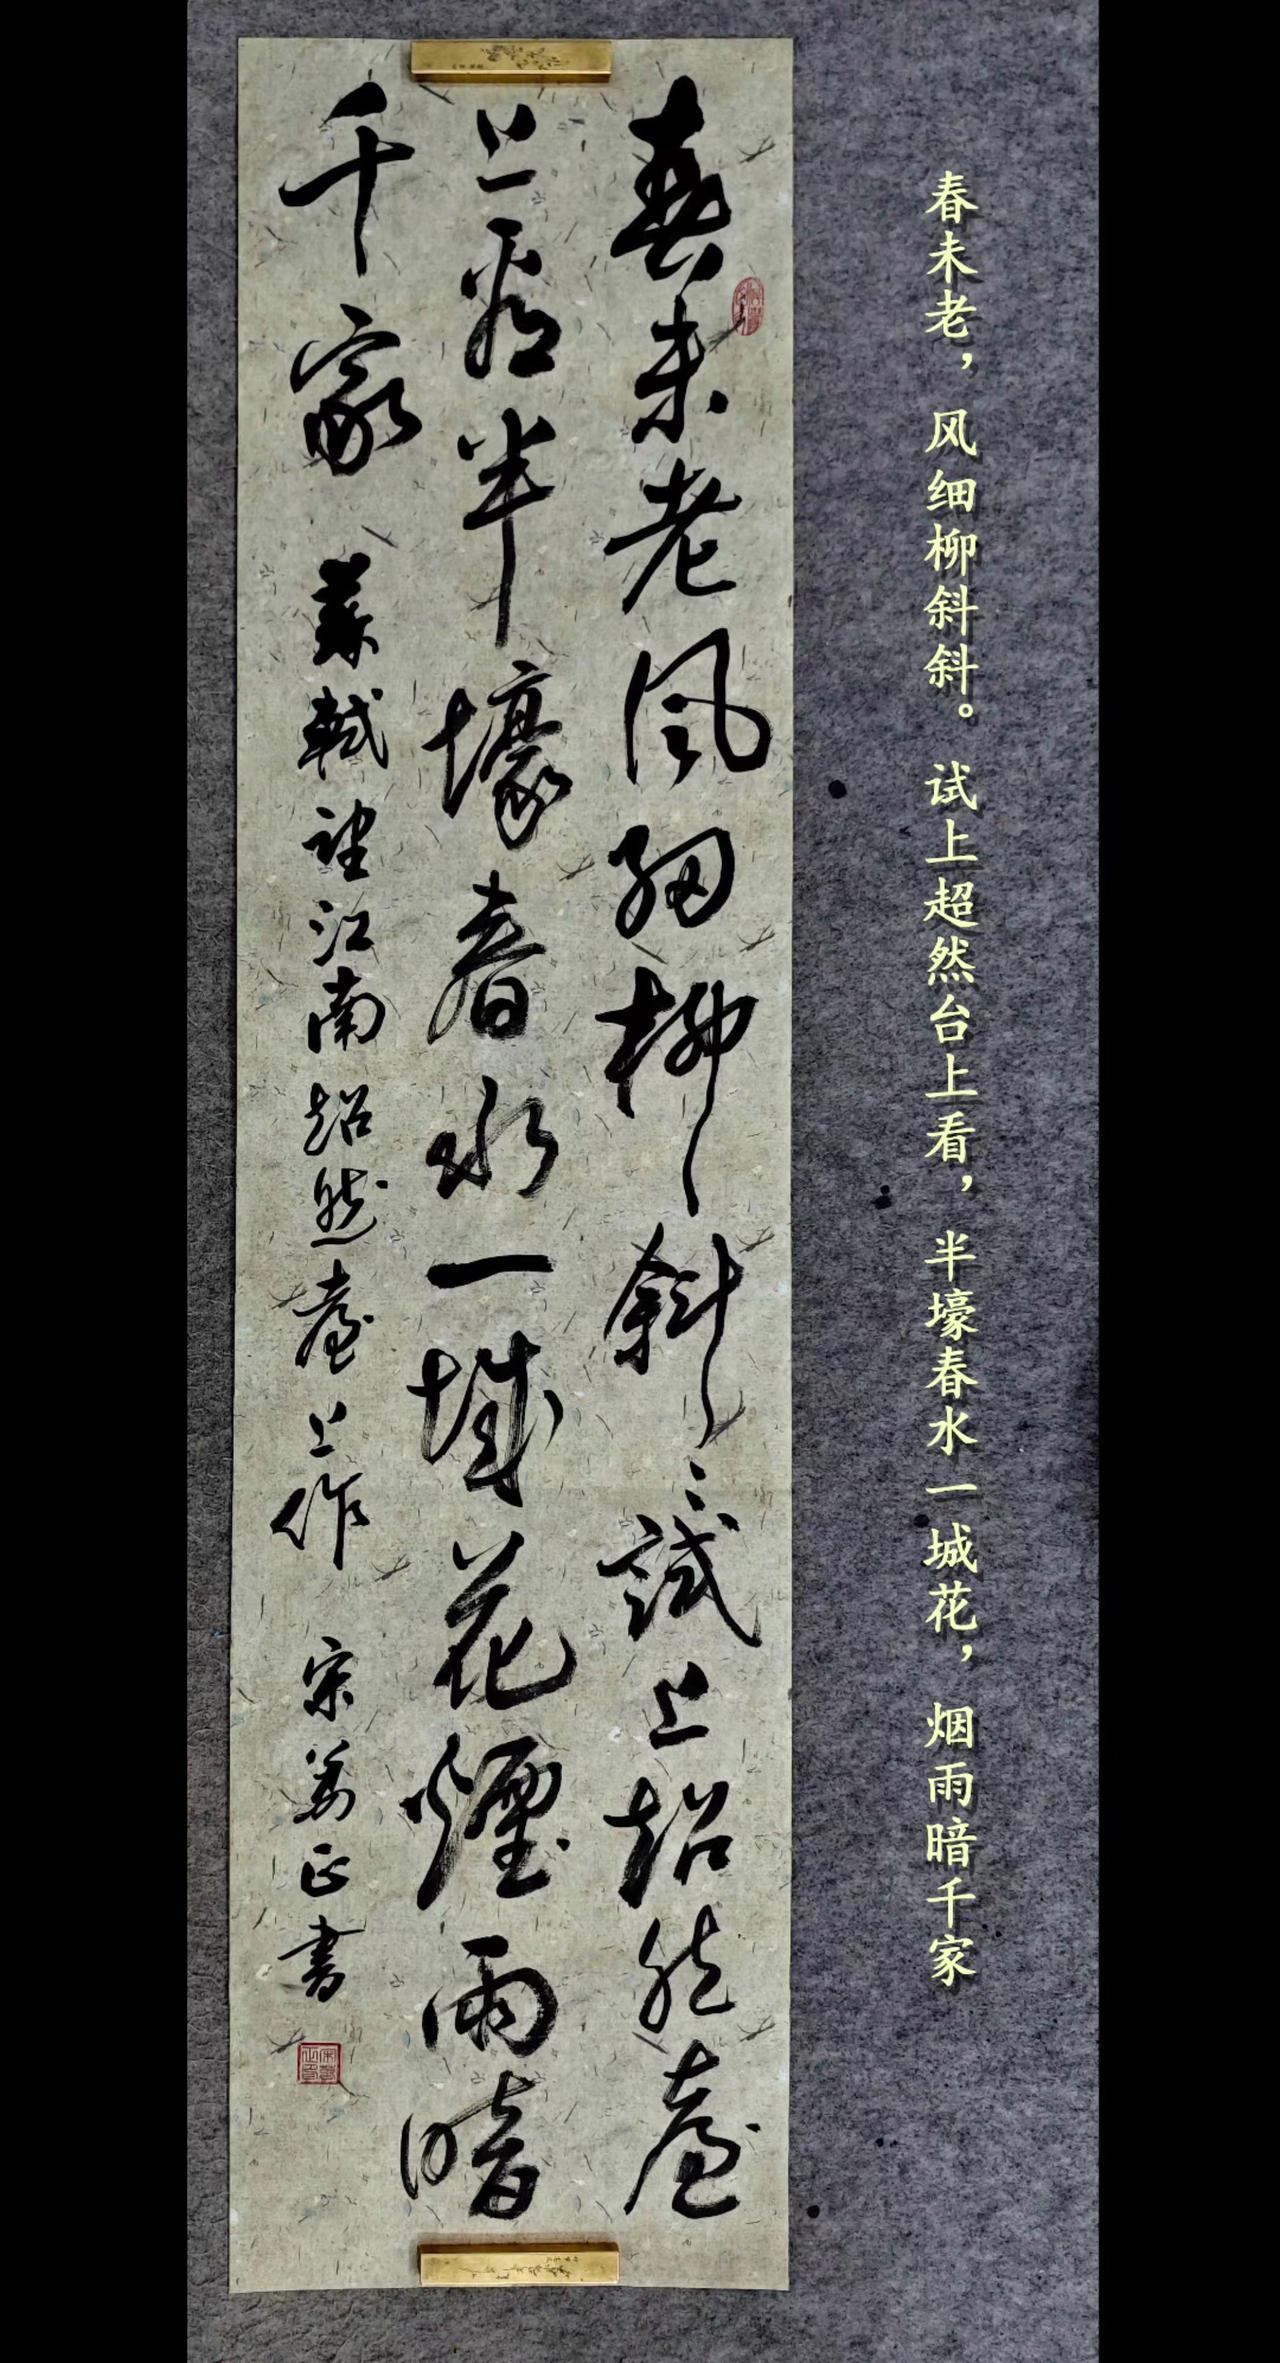 春未老风細柳斜〻試上超然臺
上看半壕春水一城花煙雨暗
千家
蘇軾望江南超然臺上作
宋万正書
春未老，风细柳斜斜。试上超然台上看，半壕春水一城花，烟雨暗千家